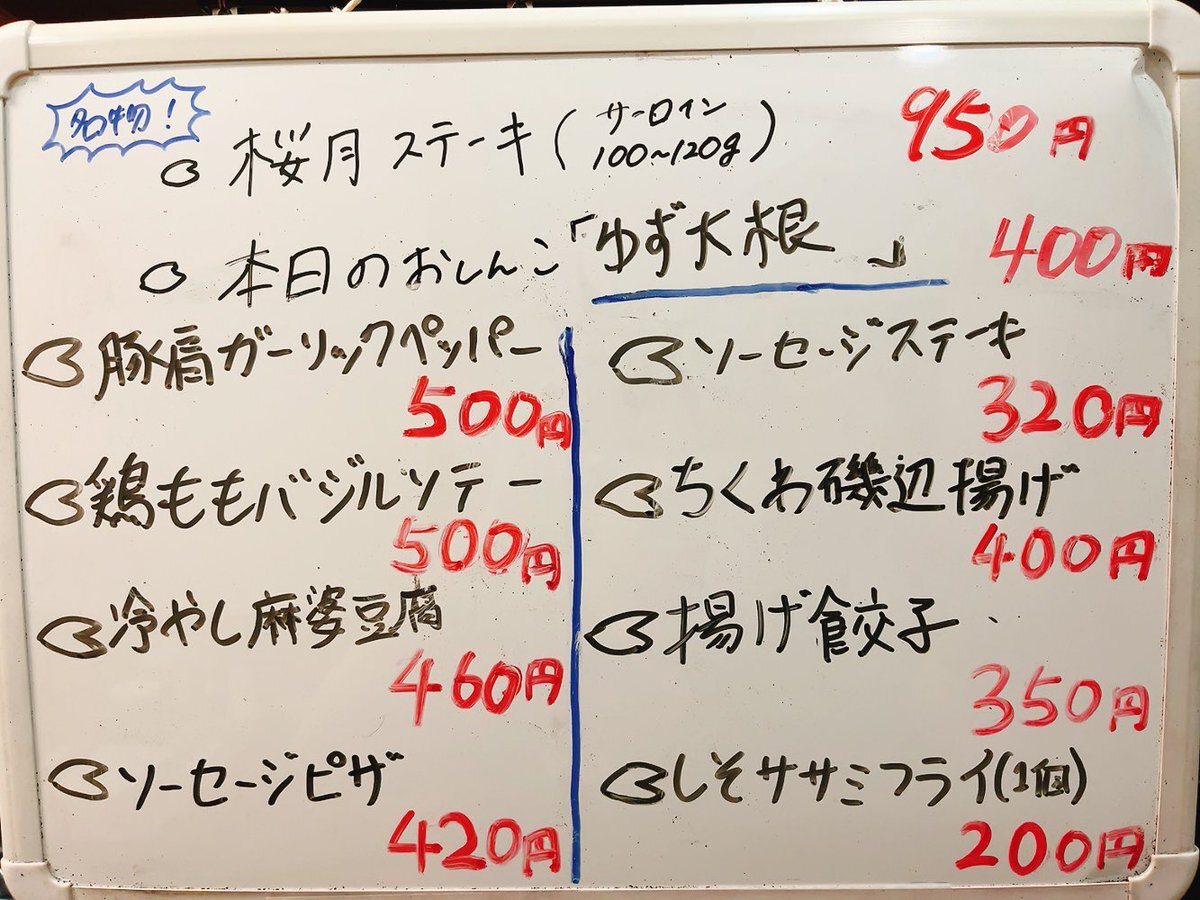 名物!
桜月ステーキ(サーロイン 100~120g) 950円
本日のおしんこ「ゆず大根」 400円
豚肩ガーリックペッパー
500円
鶏ももバジルソテー
500円
冷やし麻婆豆腐
460円
ソーセージピザ
420円
ソーセージステーキ
320円
ちくわ磯辺揚げ
400円
揚げ餃子
350円
しそササミフライ(1個)
200円